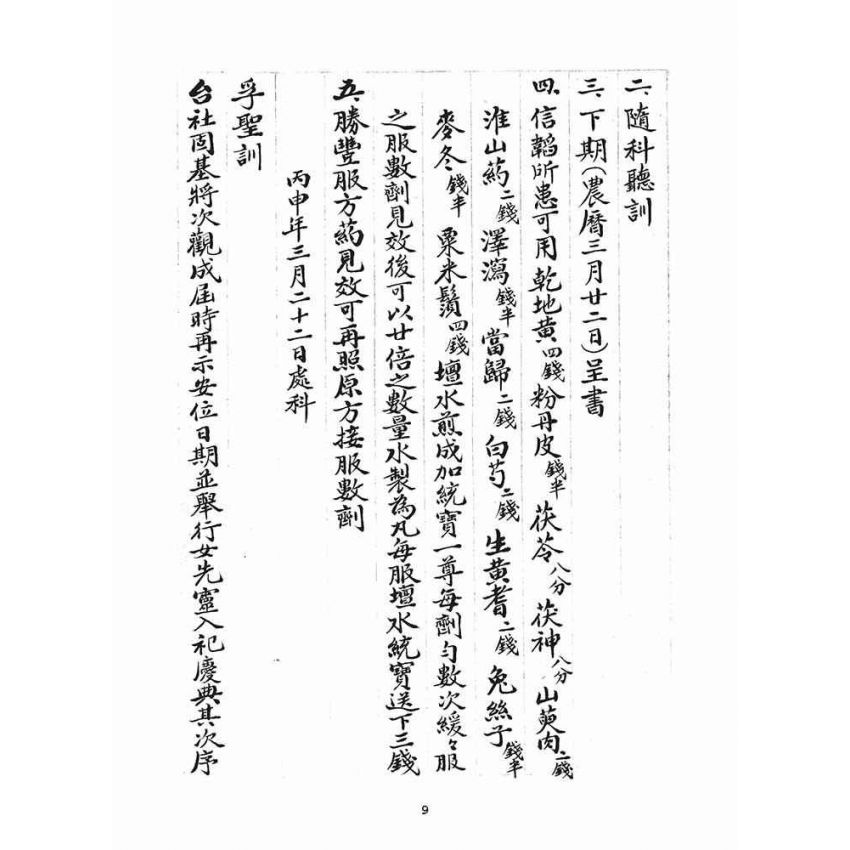 二、隨科聽訓
三、下期(農曆三月廿二日)呈書
四、信韜所患可用乾地黃四錢粉丹皮錢半茯苓八分茯神八分山萸肉二錢
淮山药二錢澤瀉錢半當歸二錢白芍二錢生黃耆二錢兔絲子錢半
麥冬錢半粟米鬚四錢壇水煎成加統寶一尊每劑勻數次緩々服
之服數劑見效後可以廿倍之數量水製為凡每服壇水統寶送下三錢
五、勝豐服方药見效可再照原方接服數劑
丙申年三月二十二日處科
孚聖訓
台社固基將次觀成屆時再示安位日期並舉行女先靈入祀慶典其次序
9